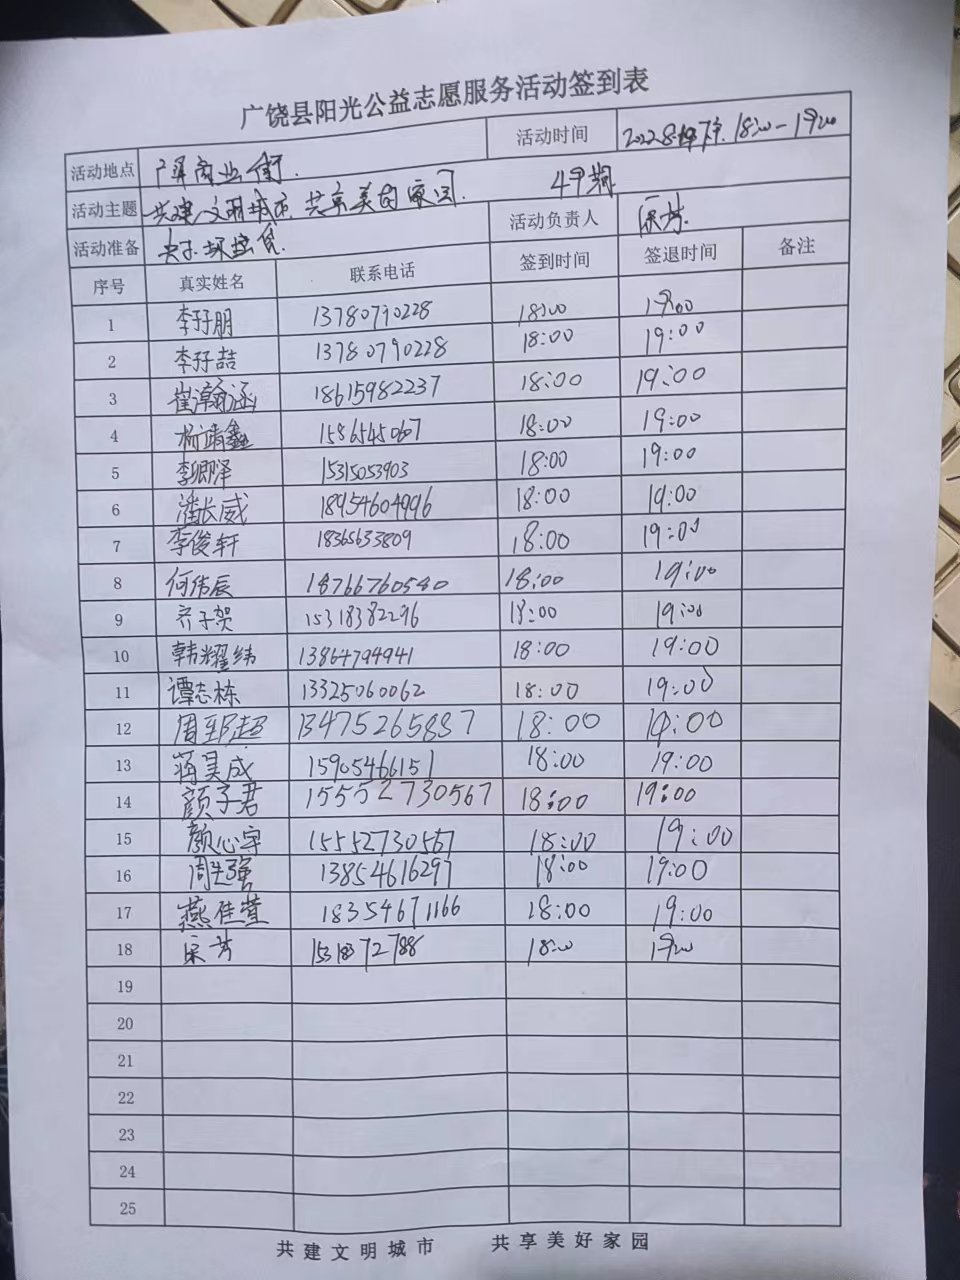 广饶县阳光公益志愿服务活动签到表
活动地点 广饶商业街. 活动时间 2022.8. 18:00-19:00
活动主题 共建文明城市,共享美好家园. 49期
活动准备 夹子.环 活动负责人
序号 真实姓名 联系电话 签到时间 签退时间 备注
1 李孖朋 13780790228 18:00 19:00
2 李孖喆 13780790228 18:00 19:00
3 崔瀚涵 18615982237 18:00 19:00
4 杨靖鑫 1586545067 18:00 19:00
5 李卿泽 15315053903 18:00 19:00
6 潘长威 18954604996 18:00 19:00
7 李俊轩 18365633809 18:00 19:00
8 何伟辰 18766760540 18:00 19:00
9 齐子贺 15318382296 18:00 19:00
10 韩耀纬 13864794941 18:00 19:00
11 谭志栋 13325060062 18:00 19:00
12 周郅超 13475265887 18:00 19:00
13 蒋昊成 15905466151 18:00 19:00
14 颜子君 15552730567 18:00 19:00
15 颜心宇 15552730567 18:00 19:00
16 周先强 13854616297 18:00 19:00
17 燕佳萱 18354671166 18:00 19:00
18 18:00 19:00
19
20
21
22
23
24
25
共建文明城市 共享美好家园